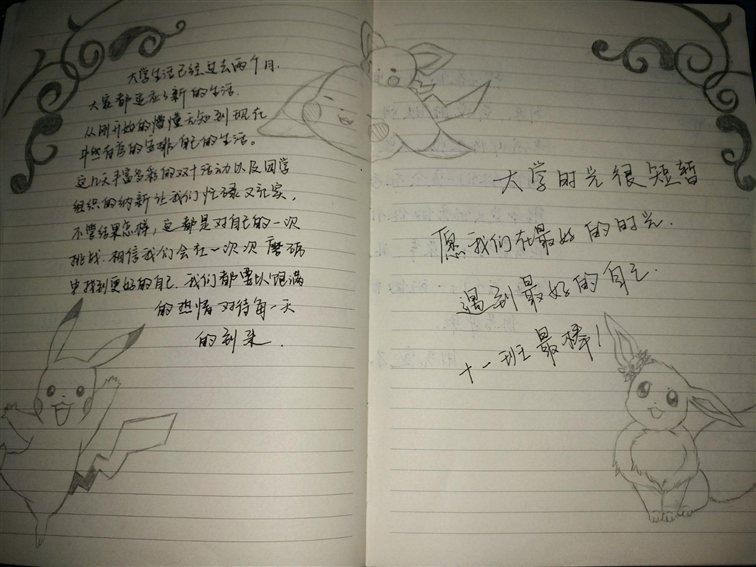 大学生活已经过去两个月.
大家都适应了新的生活.
从刚开始的懵懂无知到现在
井然有序的安排自己的生活。
这几天丰富多彩的双十活动以及团学
组织的纳新让我们忙碌又充实.
不管结果怎样,这都是对自己的一次
挑战.相信我们会在一次次磨砺
中找到更好的自己.我们都要以饱满
的热情对待每一天
的到来.
大学时光很短暂
愿我们在最好的时光.
遇到最好的自己.
十一班最棒!